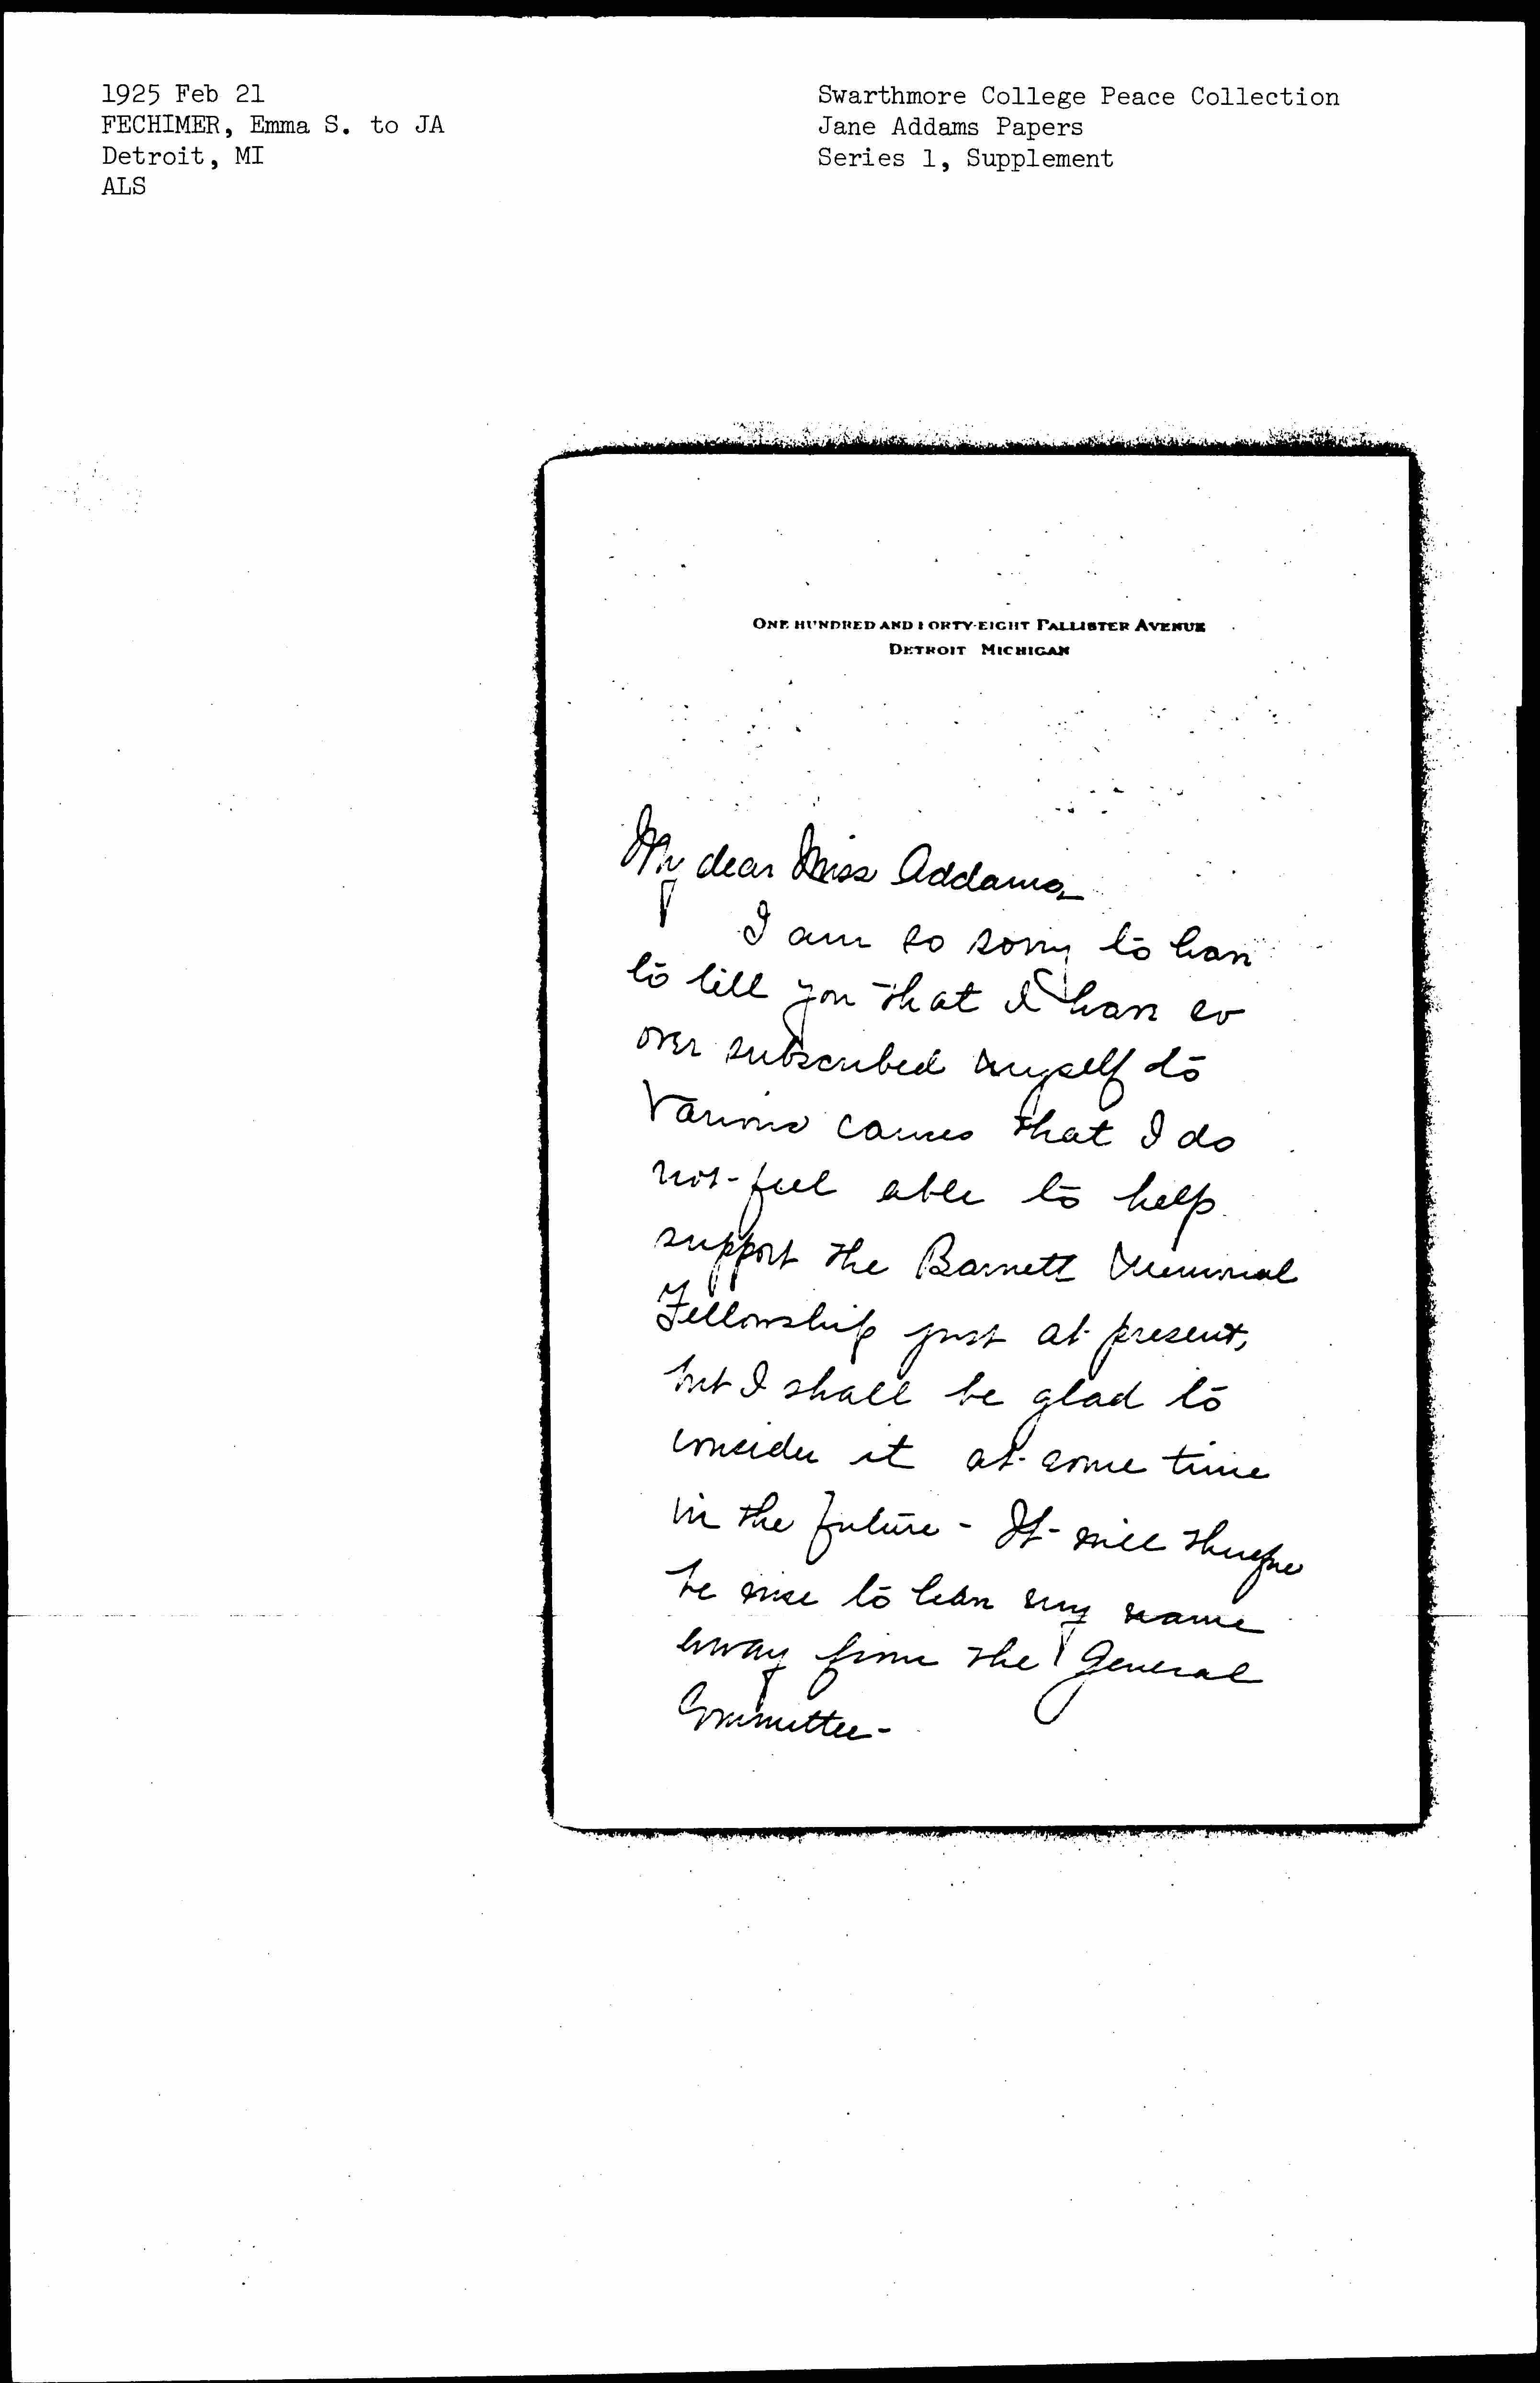 1925 Feb 21
FECHIMER, Emma S. to JA
Detroit, MI
ALS
Swarthmore College Peace Collection
Jane Addams Papers
Series 1, Supplement
ONE HUNDRED AND FORTY-EIGHT PALLISTER AVENUE
DETROIT MICHIGAN
My dear Miss Addams,
I am so sorry to have
to tell you that I have so
over subscribed myself to
various causes that I do
not feel able to help
support the Barnett Memorial
Fellowship just at present,
but I shall be glad to
consider it at some time
in the future - It will therefore
be wise to leave my name
away from the General
Committee -